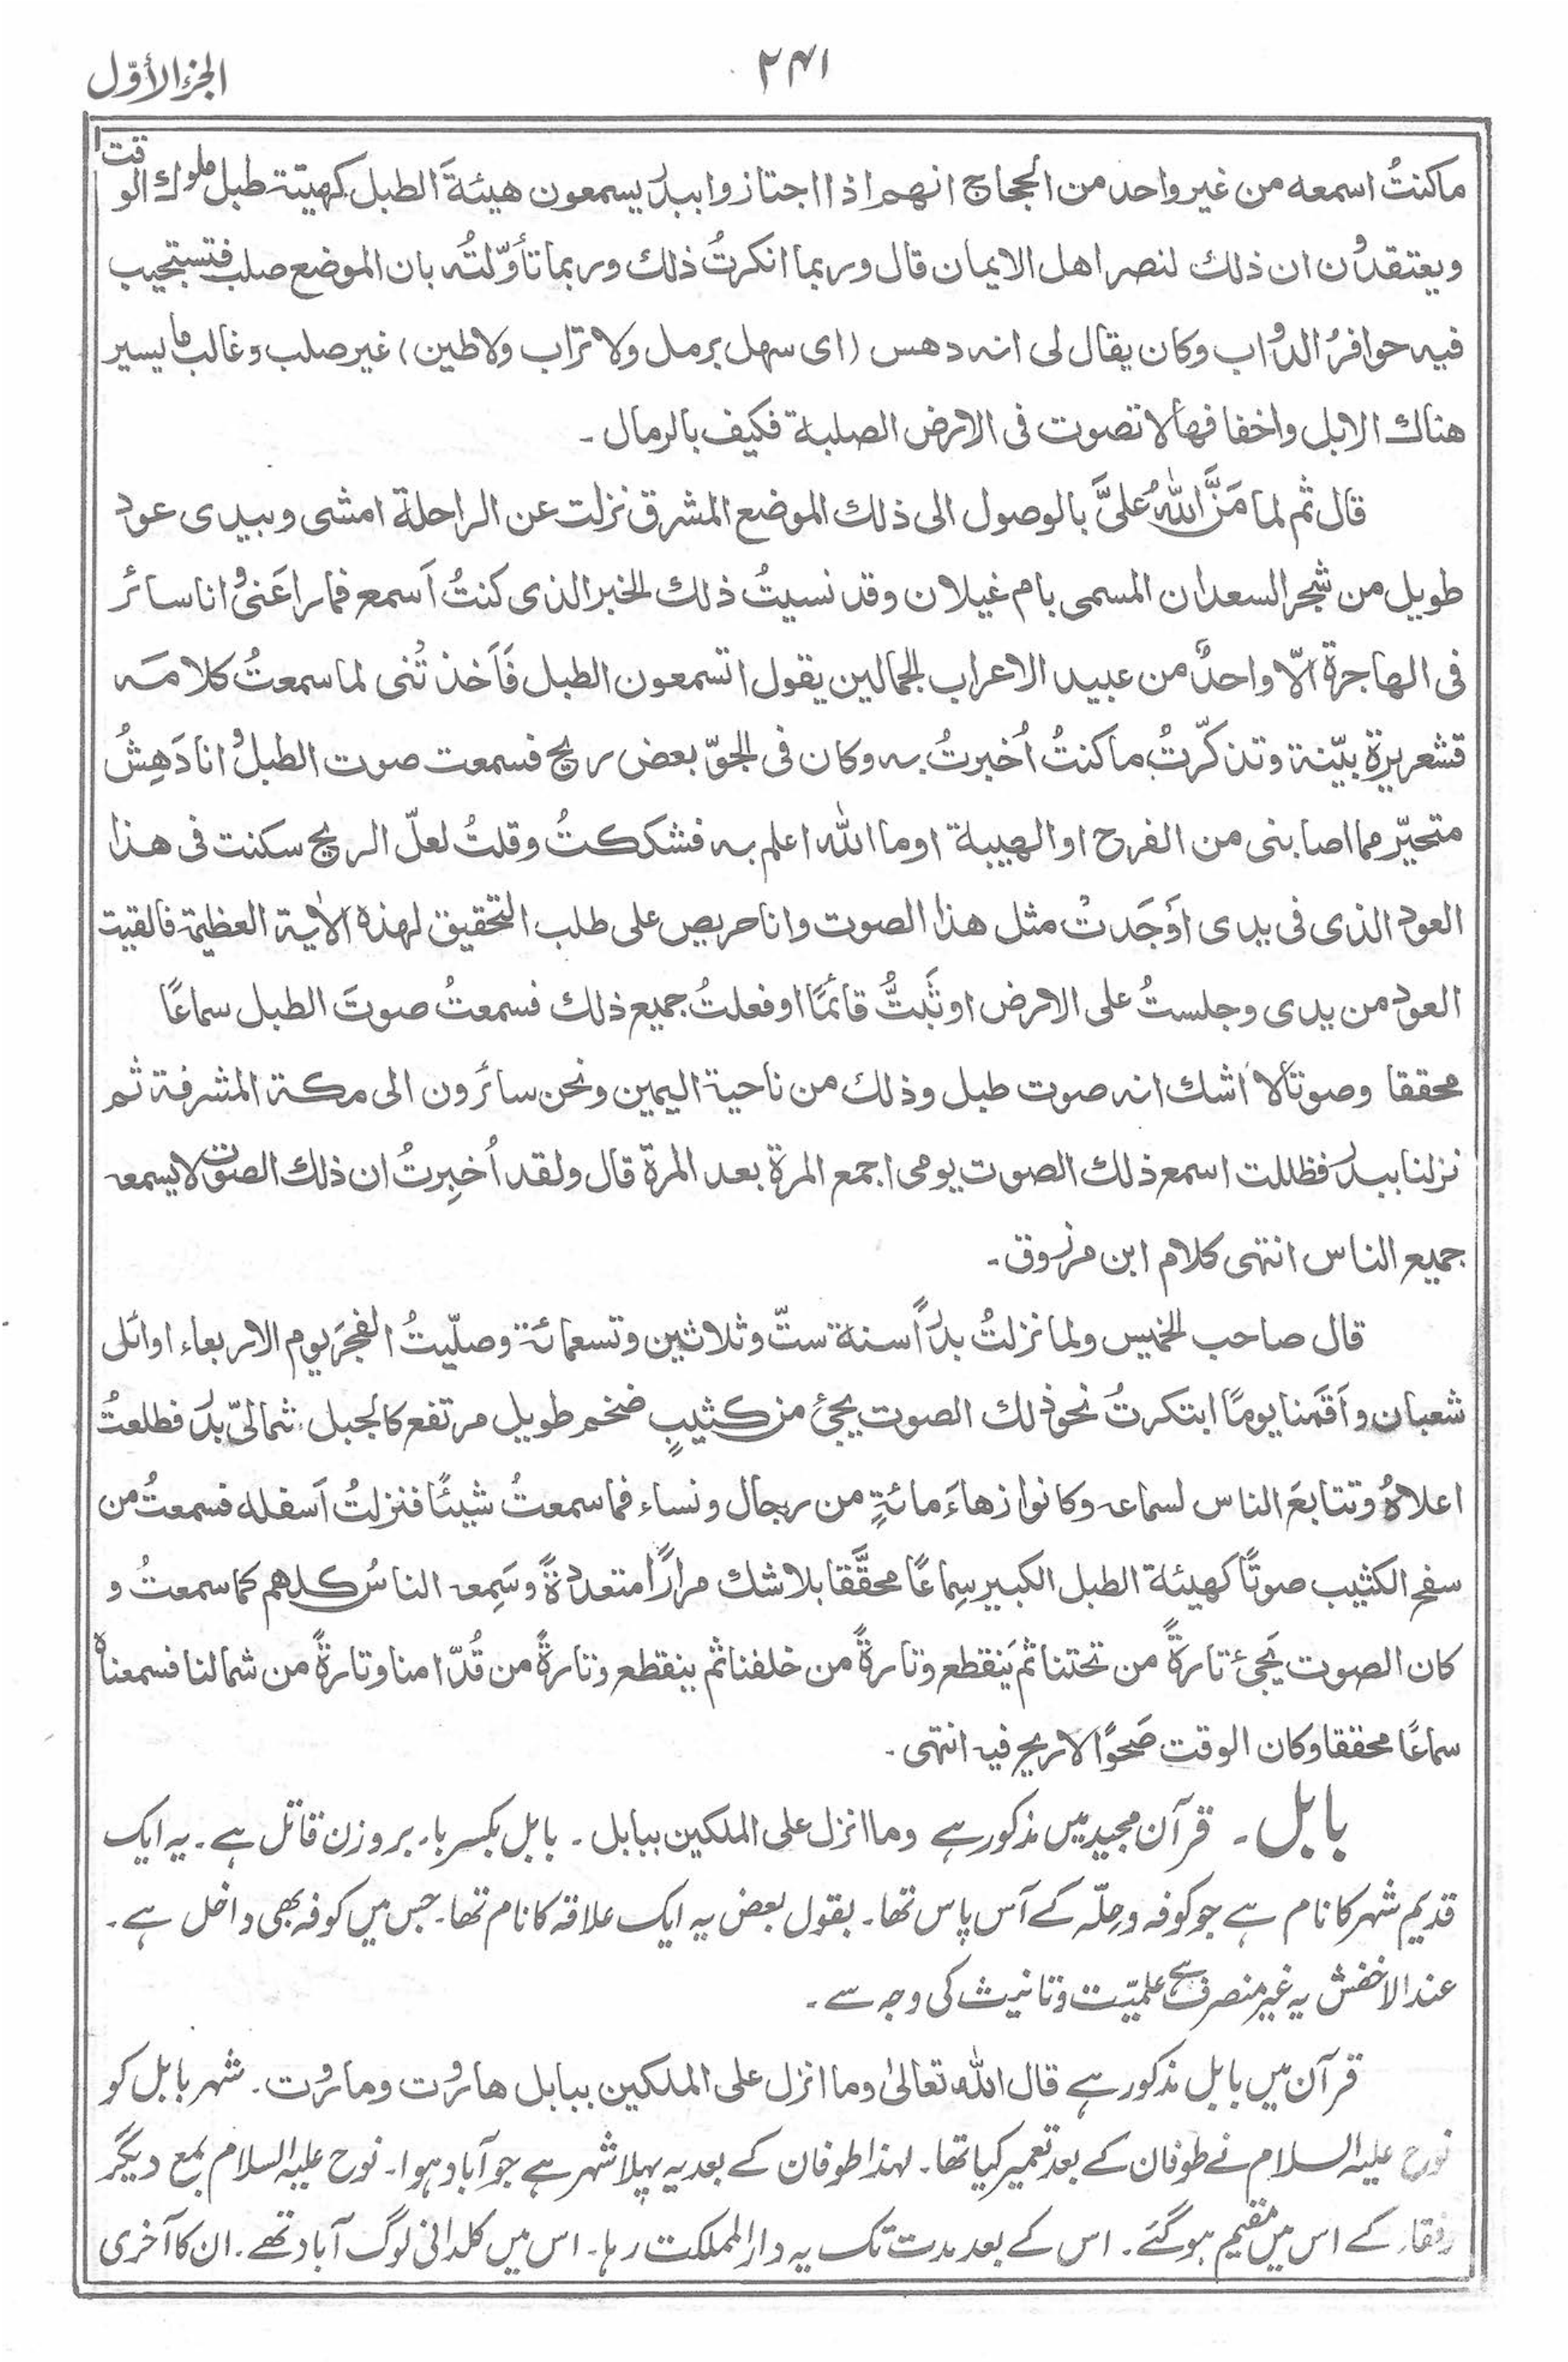 الجزء الأوّل
۲۴۱
ما كنتُ اسمعه من غير واحد من الحجاج انهم اذا اجتازوا ببدر يسمعون هيئةَ الطبل كهيئة طبل ملوك الوقت
ويعتقدون ان ذلك لنصر اهل الايمان قال وربما انكرتُ ذلك وربما تأوّلتُه بان الموضع صلب فتستجيب
فيه حوافرُ الدواب وكان يقال لى انه دهس (اى سهل برمل ولا تراب ولا طين) غير صلب وغالب ما يسير
هناك الابل واخفافها لا تصوت فى الارض الصلبة فكيف بالرمال ـ
قال ثم لما مَنَّ اللهُ علىَّ بالوصول الى ذلك الموضع المشرق نزلت عن الراحلة امشى وبيدى عود
طويل من شجر السعدان المسمى بام غيلان وقد نسيتُ ذلك الخبر الذى كنتُ اَسمع فما راعَنى وانا سائر
فى الهاجرة اِلّا واحدٌ من عبيد الاعراب الجمالين يقول اتسمعون الطبل فَاَخذتُنى لما سمعتُ كلامَه
قشعريرة بيّنة وتذكّرتُ ما كنتُ اُخبرتُ به وكان فى الجوّ بعض ريح فسمعت صوت الطبل وانا دَهِشُ
متحيّر مما اصابنى من الفرح او الهيبة او ما الله اعلم به فشككتُ وقلتُ لعلّ الريح سكنت فى هذا
العود الذى فى يدى اوَجَدتْ مثل هذا الصوت وانا حريص على طلب التحقيق لهذه الآية العظيمة فالقيت
العود من يدى وجلستُ على الارض او ثَبتُّ قائمًا او فعلتُ جميع ذلك فسمعتُ صوتَ الطبل سماعًا
محققا وصوتًا لا اشك انه صوت طبل وذلك من ناحية اليمين ونحن سائرون الى مكة المشرفة ثم
نزلنا ببدر فظللت اسمع ذلك الصوت يومى اجمع المرة بعد المرة قال ولقد اُخبِرتُ ان ذلك الصوت لا يسمعه
جميع الناس انتهى كلام ابن مرزوق ـ
قال صاحب الخميس ولما نزلتُ بدراً سنة ستّ وثلاثين وتسعمائة وصلّيتُ الفجرَ يوم الاربعاء اوائل
شعبان واَقَمنا يومًا ابتكرتُ نحو ذلك الصوت يجئ من كثيبٍ ضخم طويل مرتفع كالجبل شمالىّ بدر فطلعتُ
اعلاهُ وتتابعَ الناس لسماعه وكانوا زهاءَ مائةٍ من رجال ونساء فما سمعتُ شيئًا فنزلتُ اَسفله فسمعتُ من
سفح الكثيب صوتًا كهيئة الطبل الكبير سِماعًا محقَّقا بلا شك مرارًا متعددةً وسَمِعه الناسُ كلهم كما سمعتُ و
كان الصوت يَجئ تارةً من تحتنا ثم يَنقطع وتارةً من خلفنا ثم ينقطع وتارةً من قُدّامنا وتارةً من شمالنا فسمعناه
سماعًا محققا وكان الوقت صَحوًا لا ريح فيه انتهى ۔
بابل ۔ قرآن مجید میں مذکور ہے وما انزل على الملكين ببابل ۔ بابل بکسر باء بر وزن قاتل ہے ۔ یہ ایک
قدیم شہر کا نام ہے جو کوفہ و حِلّہ کے آس پاس تھا۔ بقول بعض یہ ایک علاقہ کا نام تھا۔ جس میں کوفہ بھی داخل ہے ۔
عند الاخفش یہ غیر منصرف ہے علمیّت و تانیث کی وجہ سے ۔
قرآن میں بابل مذکور ہے قال الله تعالىٰ وما انزل على الملكين ببابل هاروت وماروت ۔ شہر بابل کو
نوح علیہ السلام نے طوفان کے بعد تعمیر کیا تھا۔ لہٰذا طوفان کے بعد یہ پہلا شہر ہے جو آباد ہوا۔ نوح علیہ السلام بمع دیگر
رفقاء کے اس میں مقیم ہو گئے۔ اس کے بعد مدت تک یہ دار المملکت رہا۔ اس میں کلدانی لوگ آباد تھے۔ ان کا آخری